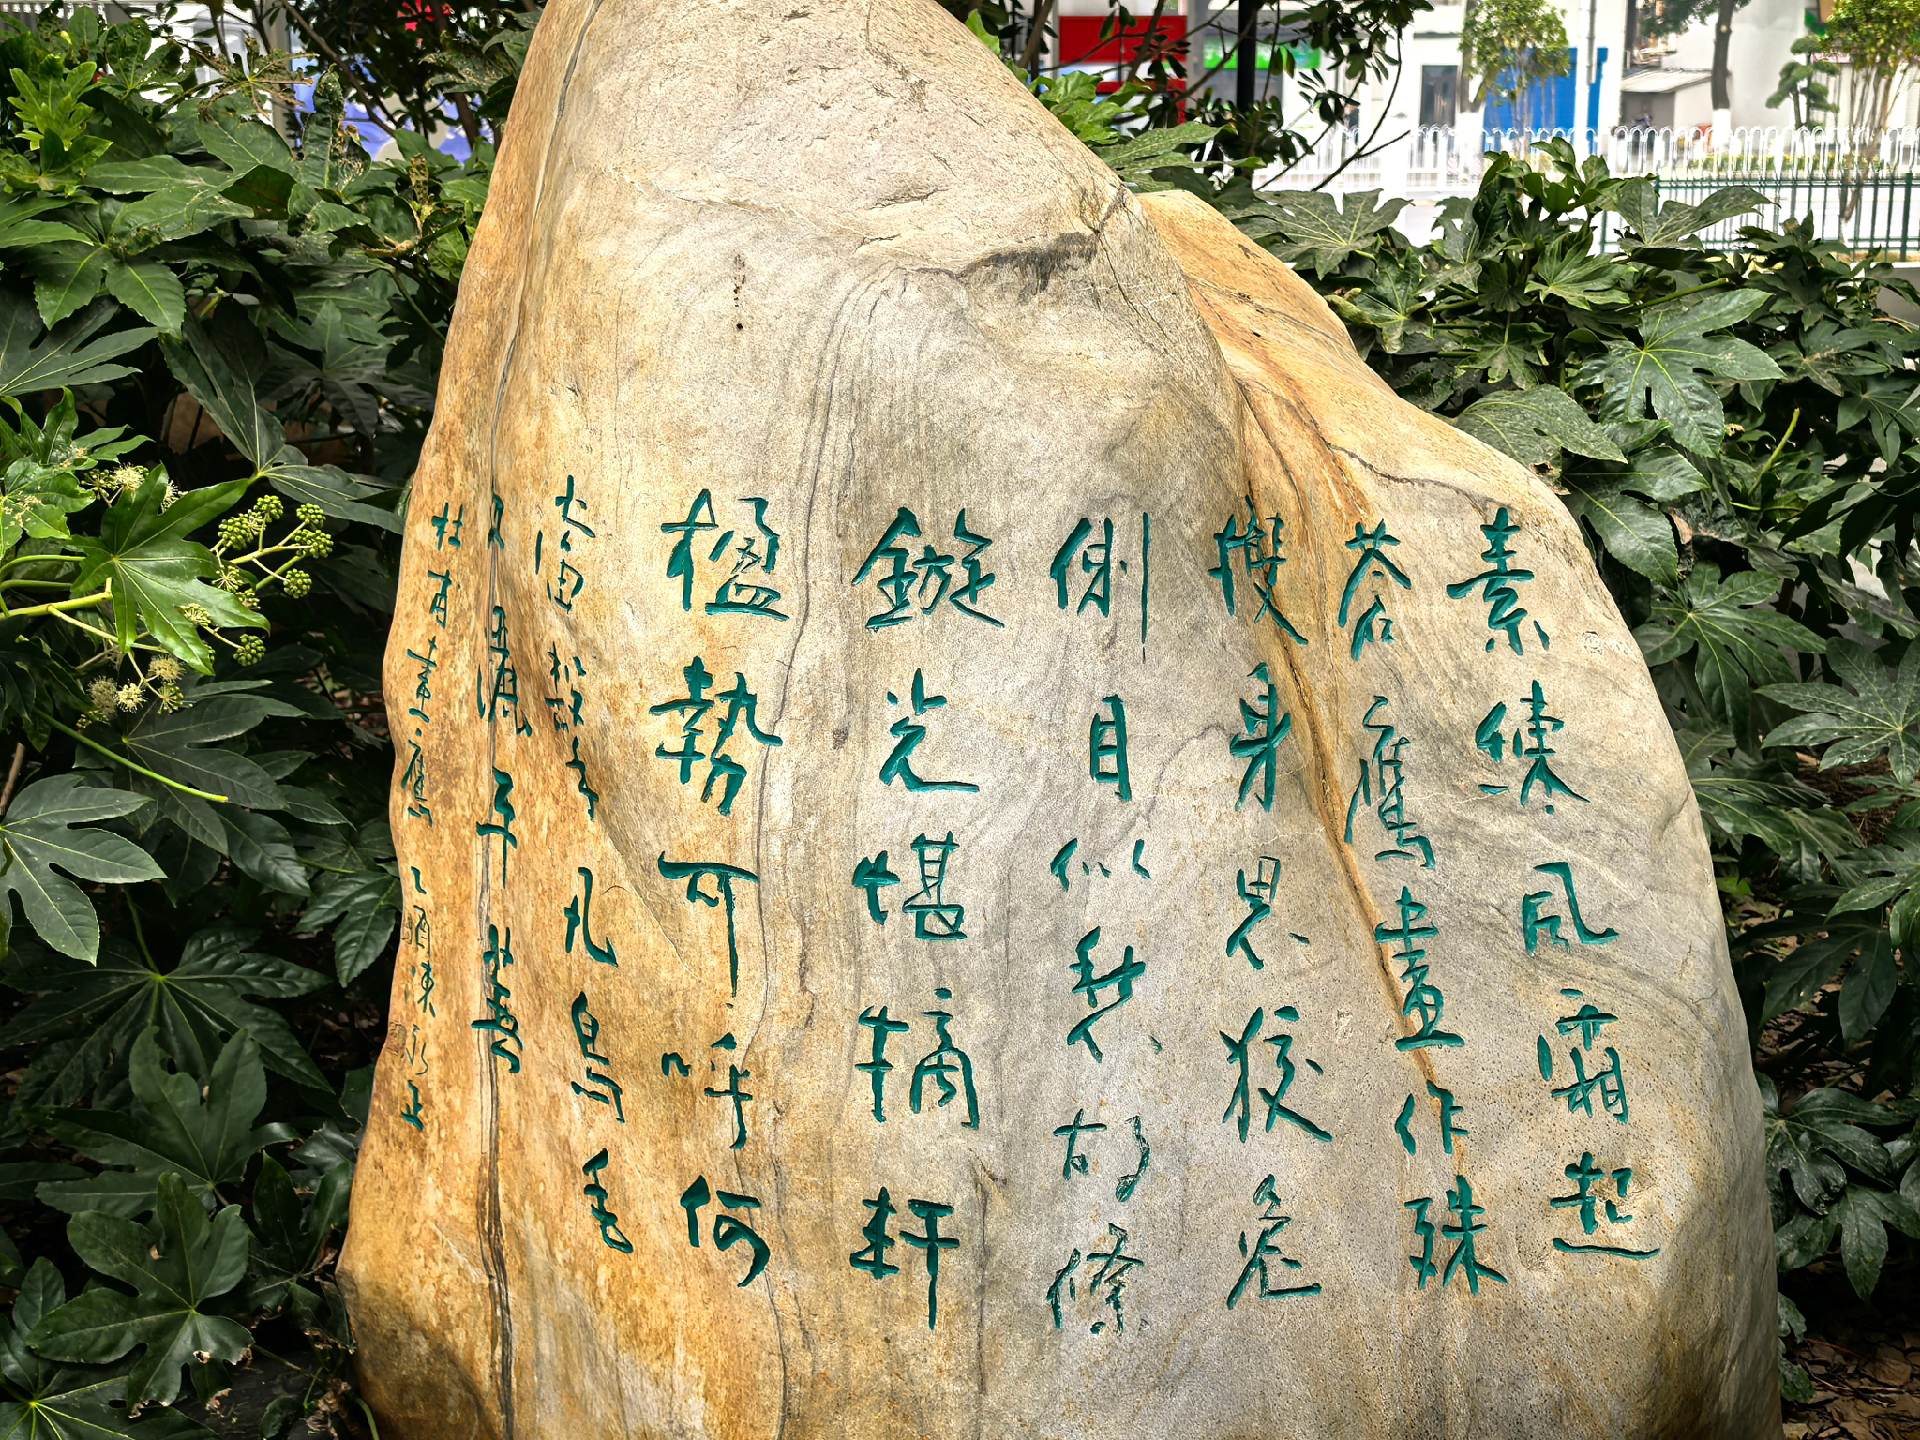 素練風霜起
蒼鷹畫作殊
㩳身思狡兔
側目似愁胡絛
鏇光堪摘軒
楹勢可呼何
當擊凡鳥毛
血灑平蕪
杜甫畫鷹 乙酉陳永正